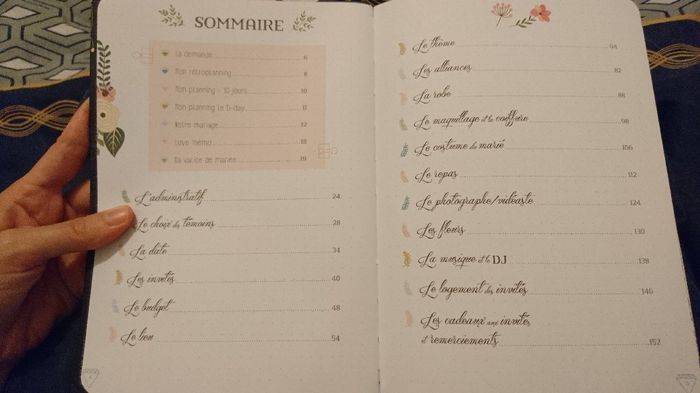 SOMMAIRE
La demande 6
Mon rétroplanning 8
Mon planning - 10 jours 10
Mon planning le D-day 11
Notre mariage 12
Love mémo 18
Ma valise de mariée 19
L'administratif 24
Le choix des témoins 28
La date 34
Les invités 40
Le budget 48
Le lieu 54
Le thème 64
Les alliances 82
La robe 88
Le maquillage et la coiffure 98
Le costume du marié 106
Le repas 112
Le photographe/vidéaste 124
Les fleurs 130
La musique et le DJ 138
Le logement des invités 146
Les cadeaux aux invités
et remerciements 152